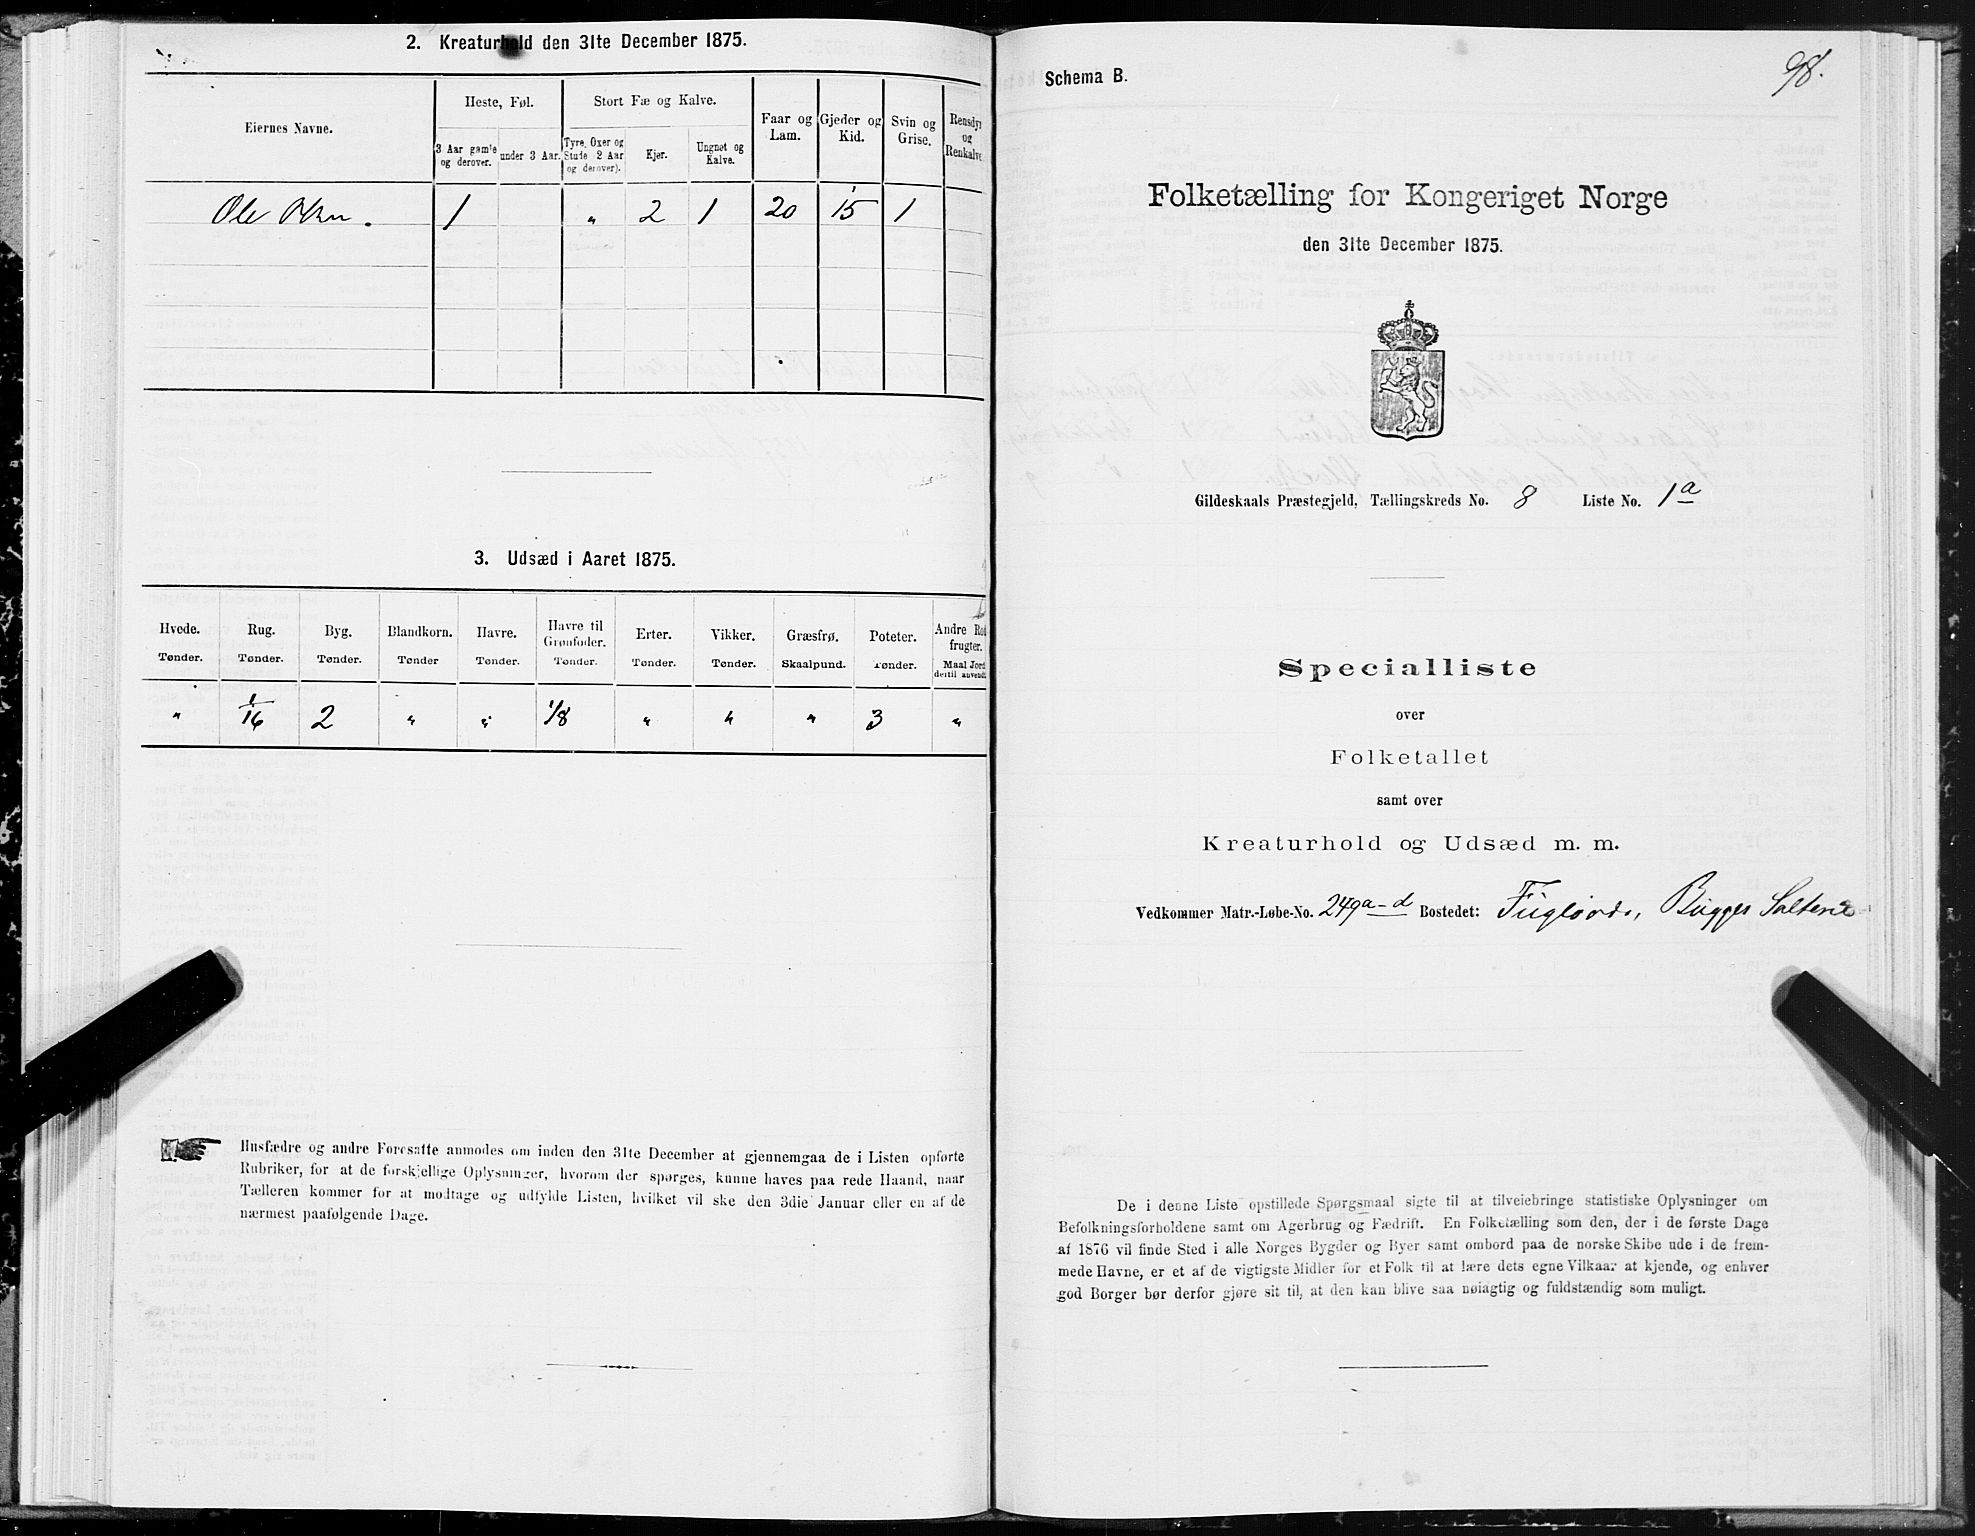 2. Kreaturhold den 31te December 1875.
Eiernes Navne.
Heste, Føl.
3 Aar gamle og derover.
under 3 Aar.
Stort Fæ og Kalve.
Tyre, Oxer og Stude 2 Aar og derover).
Kjør.
Ungnøt og Kalve.
Faar og Lam.
Gjeder og Kid.
Svin og Grise.
Rensdyr og Renkalve
Ole Olsen. 1 " 2 1 20 15 1
3. Udsæd i Aaret 1875.
Hvede. Rug. Byg. Blandkorn. Havre. Havre til Grønfoder. Erter. Vikker. Græsfrø. Poteter. Andre Rodfrugter.
Tønder. Tønder. Tønder. Tønder Tønder. Tønder. Tønder. Tønder. Skaalpund. Tønder. Maal Jord dertil anvendt
" 1/16 2 " " 1/8 " " " 3 "
Husfædre og andre Foresatte anmodes om inden den 31te December at gjennemgaa de i Listen opførte
Rubriker, for at de forskjellige Oplysninger, hvorom der spørges, kunne haves paa rede Haand, naar
Tælleren kommer for at modtage og udfylde Listen, hvilket vil ske den 3die Januar eller en af de
nærmest paafølgende Dage.
98.
Schema B.
Folketælling for Kongeriget Norge
den 31te December 1875.
Gildeskaals Præstegjeld, Tællingskreds No. 8 Liste No. 1a
Specialliste
over
Folketallet
samt over
Kreaturhold og Udsæd m. m.
Vedkommer Matr.-Løbe-No. 249a-d Bostedet:
De i denne Liste opstillede Spørgsmaal sigte til at tilveiebringe statistiske Oplysninger om
Befolkningsforholdene samt om Agerbrug og Fædrift. En Folketælling som den, der i de første Dage
af 1876 vil finde Sted i alle Norges Bygder og Byer samt ombord paa de norske Skibe ude i de frem-
mede Havne, er et af de vigtigste Midler for et Folk til at lære dets egne Vilkaar at kjende, og enhver
god Borger bør derfor gjøre sit til, at den kan blive saa nøiagtig og fuldstændig som muligt.